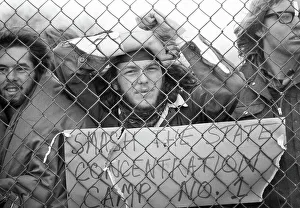 SMASH THE STATE
CONCENTRATION
CAMP NO. 1